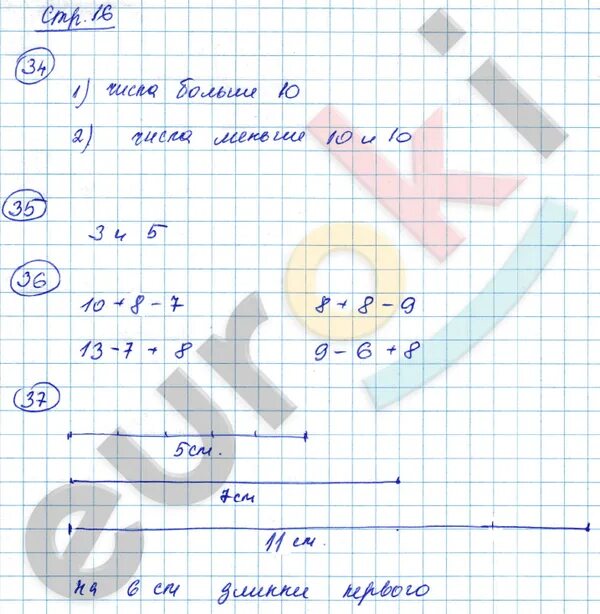 Стр. 16
34
1) числа больше 10
2) числа меньше 10 и 10
35
3 и 5
36
10 + 8 - 7 8 + 8 - 9
13 - 7 + 8 9 - 6 + 8
37
5 см.
7 см
11 см.
на 6 см длинне первого
euroki